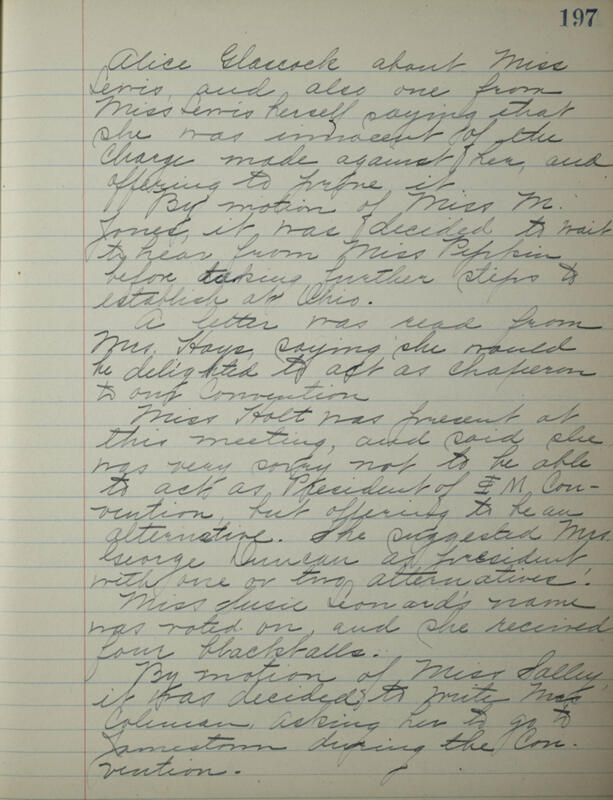 197
Alice Glascock about Miss
Lewis, and also one from
Miss Lewis herself saying that
she was innocent of the
charge made against her, and
offering to prove it.
By motion of Miss M.
Jones, it was decided to wait
to hear from Miss Pipkin
before taking further steps to
establish at Ohio.
A letter was read from
Mrs. Hays, saying she would
be delighted to act as chaperon
to our Convention
Miss Holt was present at
this meeting, and said she
was very sorry not to be able
to act as President of Σ M. Con-
vention, but offering to be an
alternative. She suggested Mrs.
George Duncan as president
with one or two alternatives.
Miss Susie Leonard's name
was voted on, and she received
four blackballs.
By motion of Miss Salley,
it was decided to write Mrs
Coleman, asking her to go to
Jamestown during the Con-
vention.